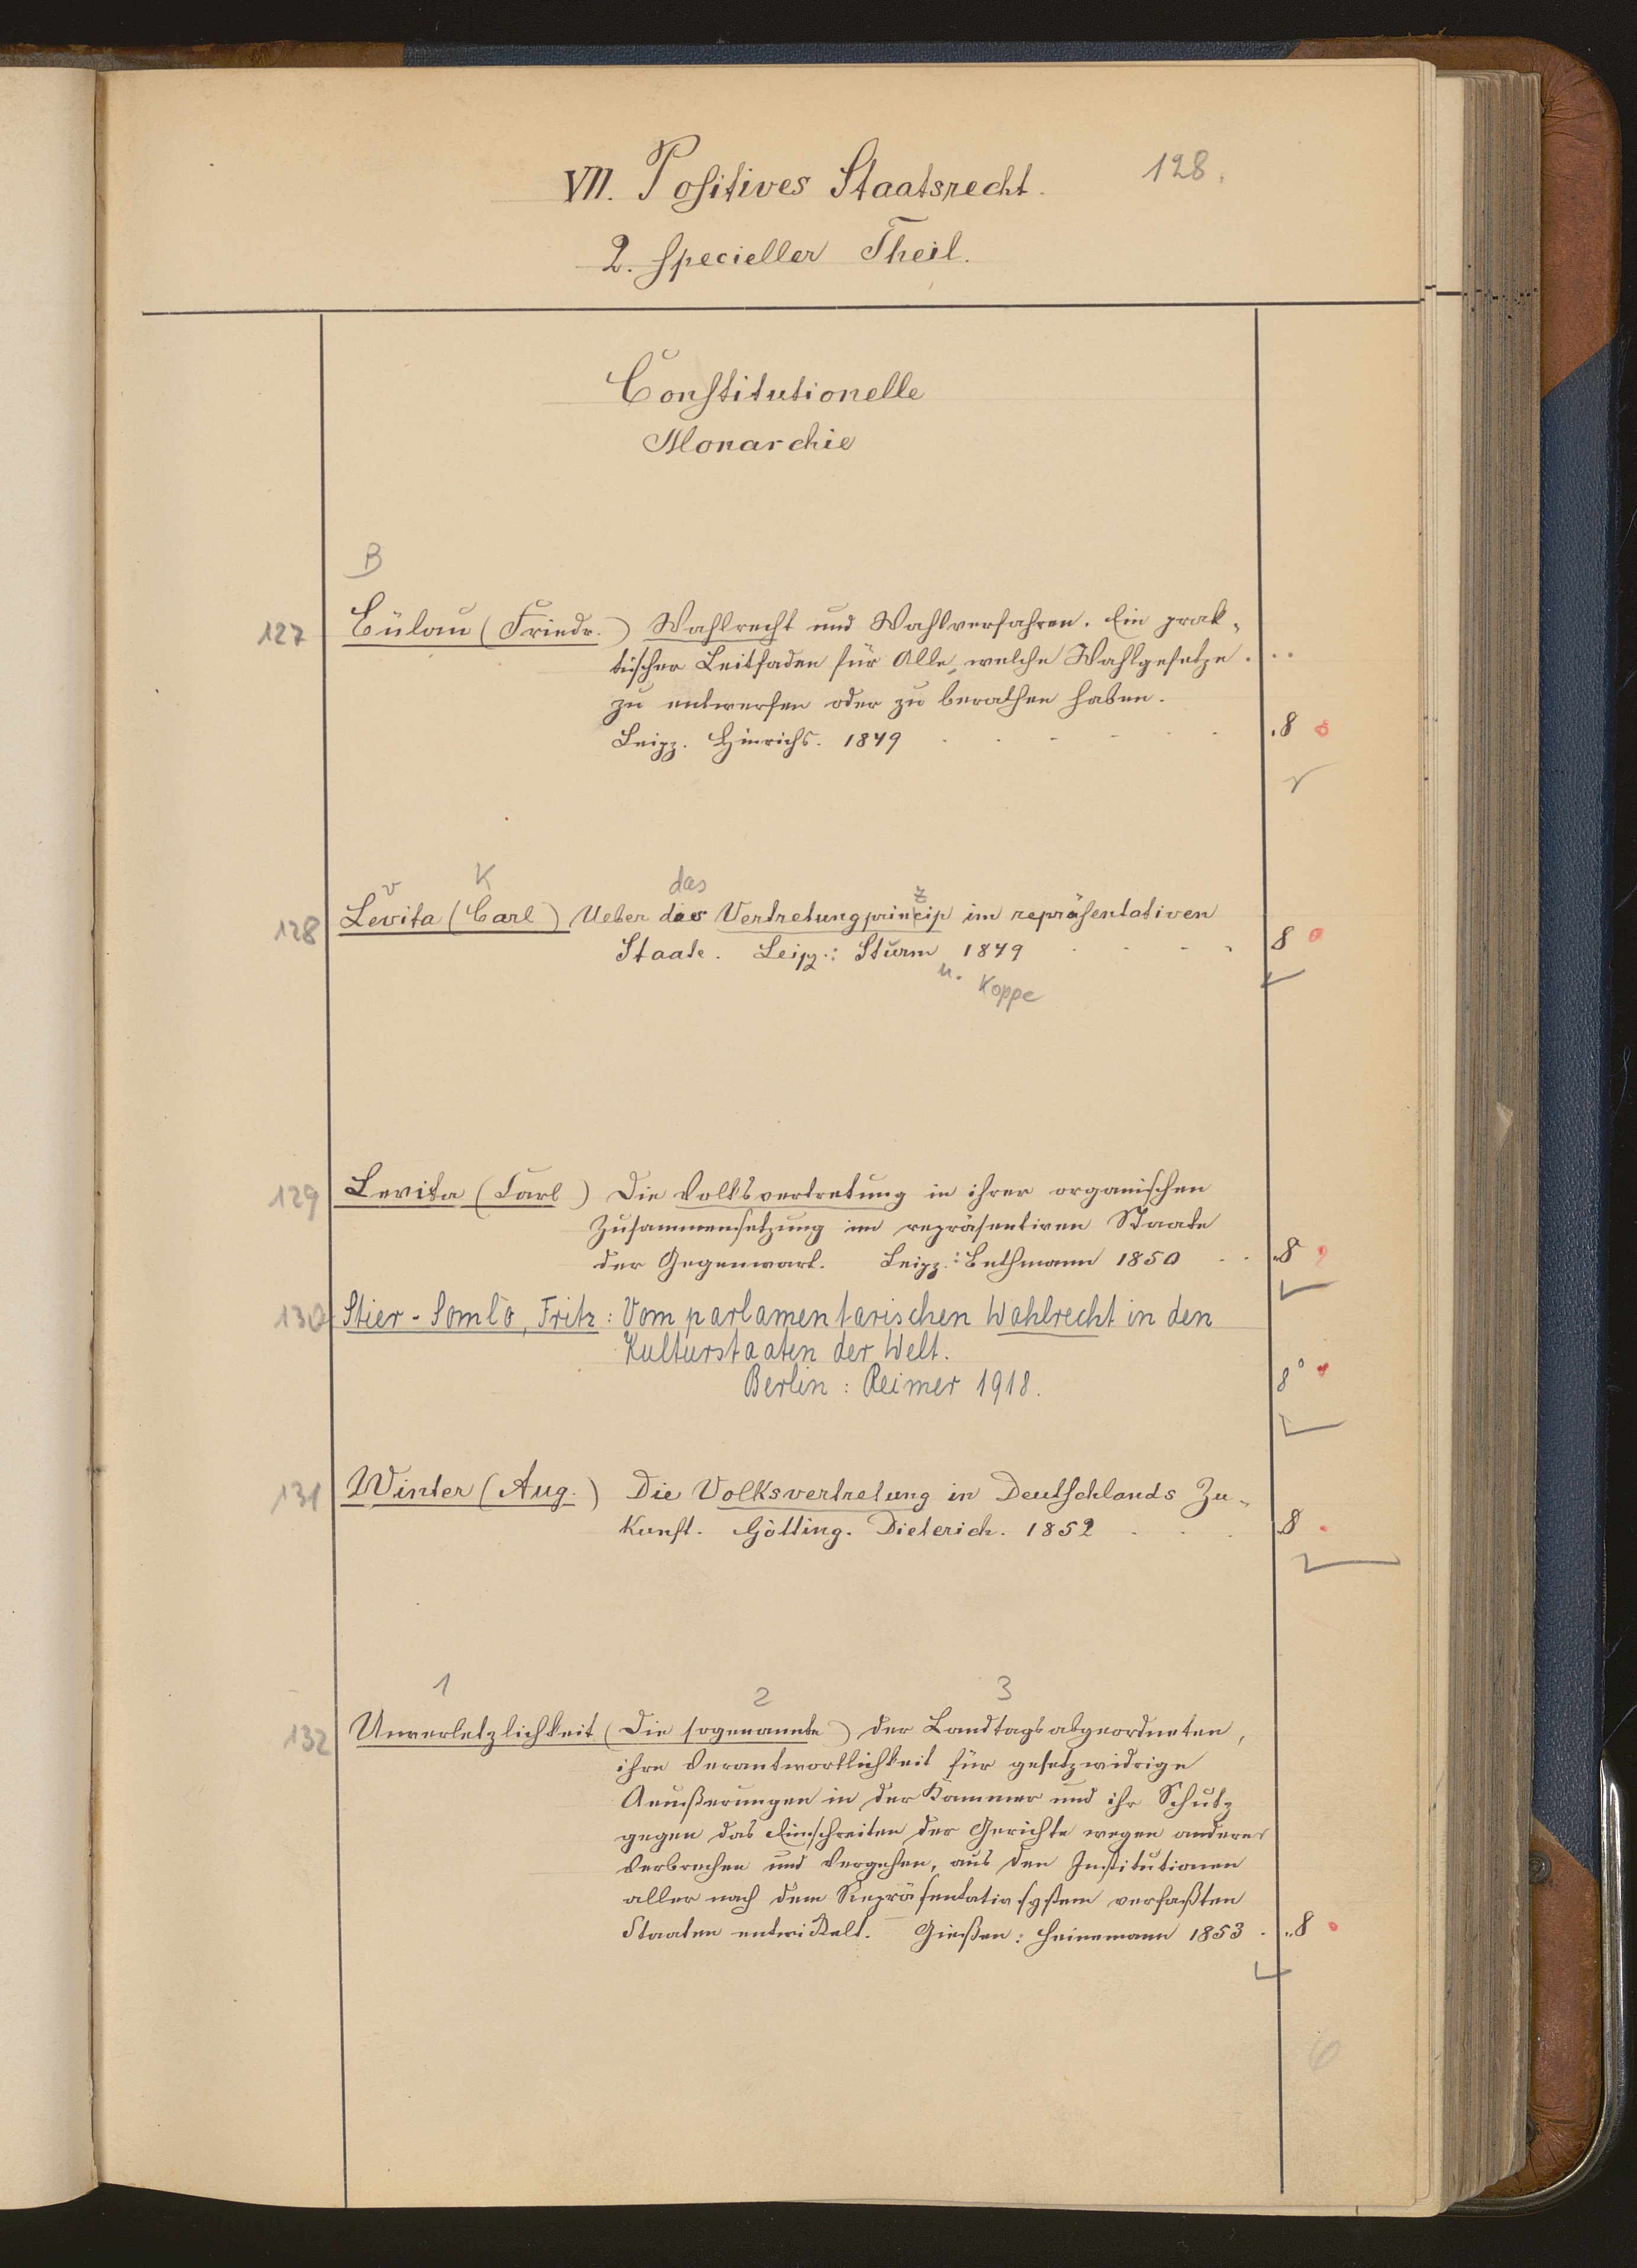 128.
VII. Positives Staatsrecht.
2. Specieller Theil.
Constitutionelle
Monarchie
B
127 Bülau (Friedr.) Wahlrecht und Wahlverfahren. Ein prak-
tischer Leitfaden für Alle, welche Wahlgesetze . . .
zu entwerfen oder zu berathen haben.
Leipz. Hinrichs. 1849 . . . . . . 8
v K das z
128 Levita (Carl) Ueber das Vertretungprincip im repräsentativen
Staate. Leipz.: Sturm 1849 . . . . 8
u. Koppe
129 Levita (Carl) Die Volksvertretung in ihrer organischen
Zusammensetzung im repräsentiven Staate
der Gegenwart. Leipz.: Bethmann 1850 . . 8
130 Stier-Somlo, Fritz: Vom parlamentarischen Wahlrecht in den
Kulturstaaten der Welt.
Berlin: Reimer 1918. 8°
131 Winter (Aug.) Die Volksvertretung in Deutschlands Zu-
kunft. Götting. Dieterich. 1852 . . . 8
1 2 3
132 Unverletzlichkeit (Die sogenannte) der Landtagsabgeordneten,
ihre Verantwortlichkeit für gesetzwidrige
Aeußerungen in der Kammer und ihr Schutz
gegen das Einschreiten der Gerichte wegen anderer
Verbrechen und Vergehen, aus den Institutionen
aller nach dem Repräsentativsystem verfaßten
Staaten entwickelt. Gießen: Heinemann 1853 . 8
6